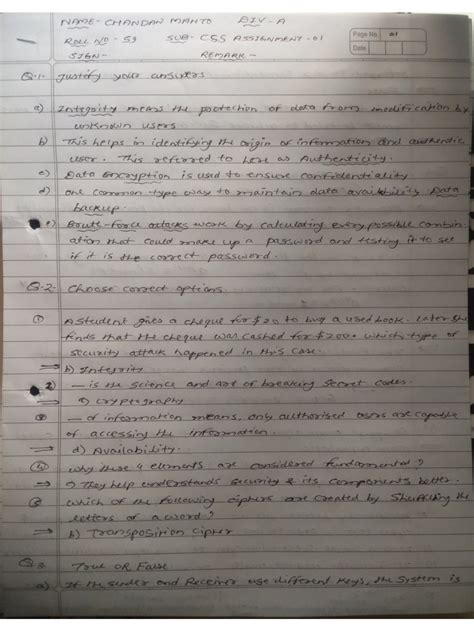 NAME- CHANDAN MAHTO DIV-A
ROLL NO - 59 SUB- CSS ASSIGNMENT-01
Page No. 01
SIGN- REMARK-
Date
Q.1. Justify your answers
a) Integrity means the protection of data from modification by
unknown users
b) This helps in identifying the origin of information and authentic
user. This referred to here as Authenticity.
c) Data Encryption is used to ensure confidentiality
d) one common type way to maintain data availability Data
backup.
e) Brute-force attacks work by calculating every possible combin-
ation that could make up a password and testing it to see
if it is the correct password.
Q-2- Choose correct options.
① A student gives a cheque for $20 to buy a used book. Later she
finds that the cheque was cashed for $200. which type of
security attack happened in this case.
→ b) Integrity
2) — is the science and art of breaking secret codes.
cryptography
— of information means, only authorised users are capable
of accessing the information.
→ d) Availability.
④ why these 4 elements are considered fundamental?
→ They help understands security & its components better.
which of the following ciphers are created by Shuffling the
letters of a word?
→ b) Transposition Cipher
Q.3 True OR False
a) If the sender and Receiver use different keys, the System is